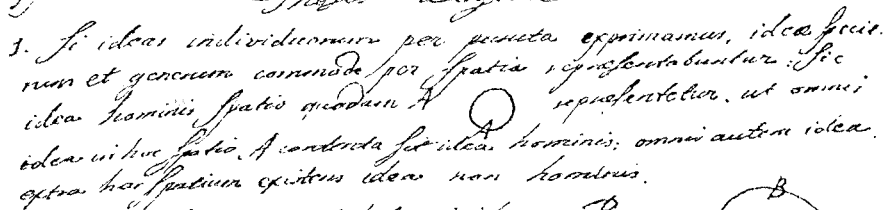 1. Si ideas individuorum per puncta exprimamus, ideæ specie-
rum et generum commode per spatia repræsentabuntur. Sic
idea hominis spatio quodam A repræsentetur, ut omnis
idea in hoc spatio A contenta sit idea hominis; omnis autem idea
extra hoc spatium existens idea non hominis.
A
B
B